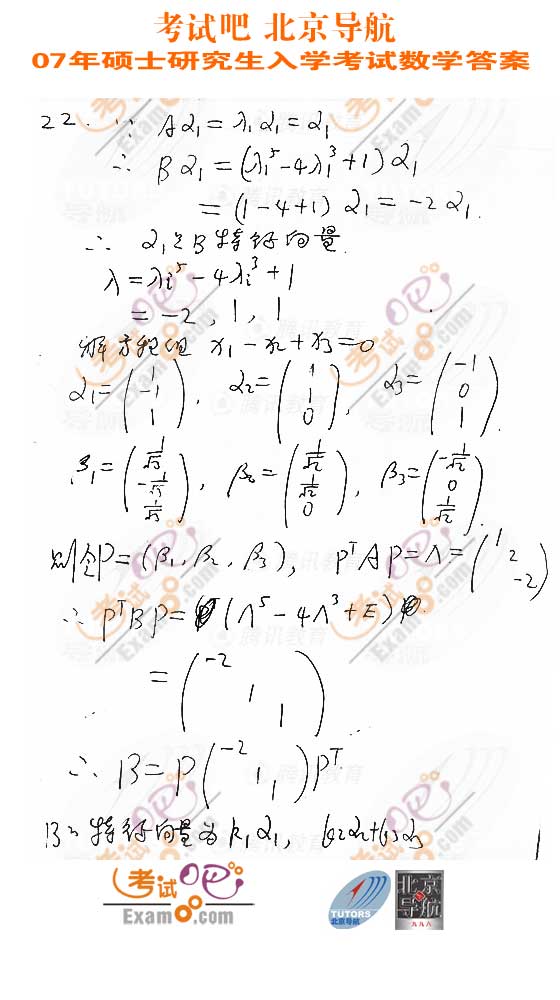 考试吧 北京导航
07年硕士研究生入学考试数学答案
22. ∵ Aα₁=λ₁α₁=α₁
∴ Bα₁=(λ₁⁵-4λ₁³+1)α₁
=(1-4+1)α₁=-2α₁.
∴ α₁是B特征向量.
λ=λᵢ⁵-4λᵢ³+1
=-2, 1, 1
解方程组 x₁-x₂+x₃=0
α₁=(1 -1 1), α₂=(1 1 0), α₃=(-1 0 1).
β₁=(1/√3 -1/√3 1/√3), β₂=(1/√2 1/√2 0), β₃=(-1/√2 0 1/√2)
则令P=(β₁, β₂, β₃), PᵀAP=Λ=(1 2 -2)
∴ PᵀBP=(Λ⁵-4Λ³+E)
=(-2 1 1)
∴ B=P(-2 1 1)Pᵀ.
B的特征向量为k₁α₁, k₂α₂+k₃α₃
考试吧
Exam8.com
TUTORS
北京导航
北京
导航
九九八